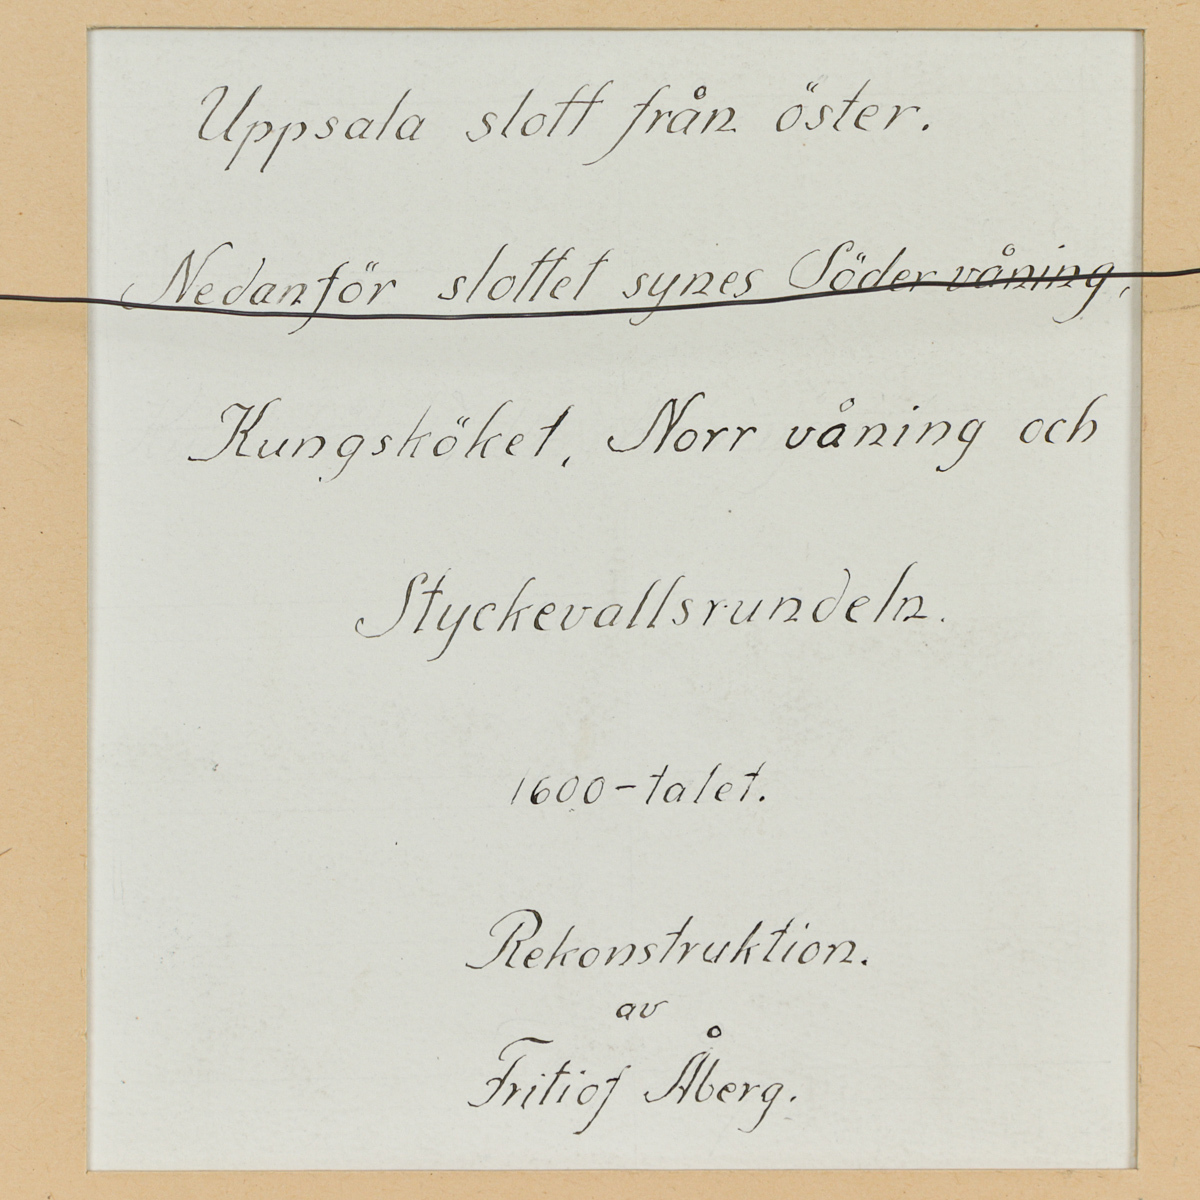 Uppsala slott från öster.
Nedanför slottet synes Söder våning,
Kungsköket, Norr våning och
Styckevallsrundeln.
1600-talet.
Rekonstruktion.
av
Fritiof Åberg.